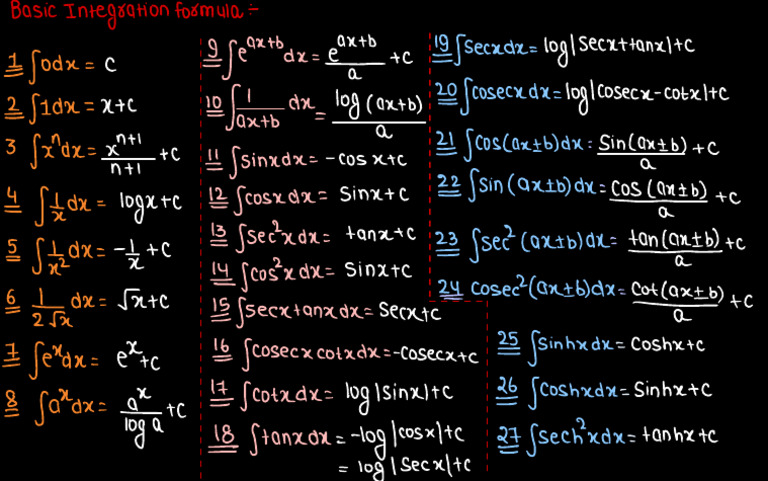 Basic Integration formula :-
1 ∫0dx = c
2 ∫1dx = x+c
3 ∫xⁿdx = xⁿ⁺¹/n+1 +c
4 ∫1/x dx = logx+c
5 ∫1/x² dx = -1/x +c
6 1/2√x dx = √x+c
7 ∫eˣdx = eˣ+c
8 ∫aˣdx = aˣ/log a +c
9 ∫e^(ax+b) dx = e^(ax+b)/a +c
10 ∫1/ax+b dx = log(ax+b)/a
11 ∫sinxdx = -cosx+c
12 ∫cosxdx = Sinx+c
13 ∫sec²xdx = tanx+c
14 ∫cos²xdx = Sinx+c
15 ∫secxtanxdx = Secx+c
16 ∫cosecxcotxdx = -cosecx+c
17 ∫cotxdx = log|sinx|+c
18 ∫tanxdx = -log|cosx|+c
= log|Secx|+c
19 ∫Secxdx = log|Secx+tanx|+c
20 ∫cosecxdx = log|cosecx-cotx|+c
21 ∫cos(ax±b)dx = Sin(ax±b)/a +c
22 ∫sin(ax±b)dx = cos(ax±b)/a +c
23 ∫sec²(ax±b)dx = tan(ax±b)/a +c
24 cosec²(ax±b)dx = cot(ax±b)/a +c
25 ∫sinhxdx = Coshx+c
26 ∫coshxdx = Sinhx+c
27 ∫sech²xdx = tanhx+c